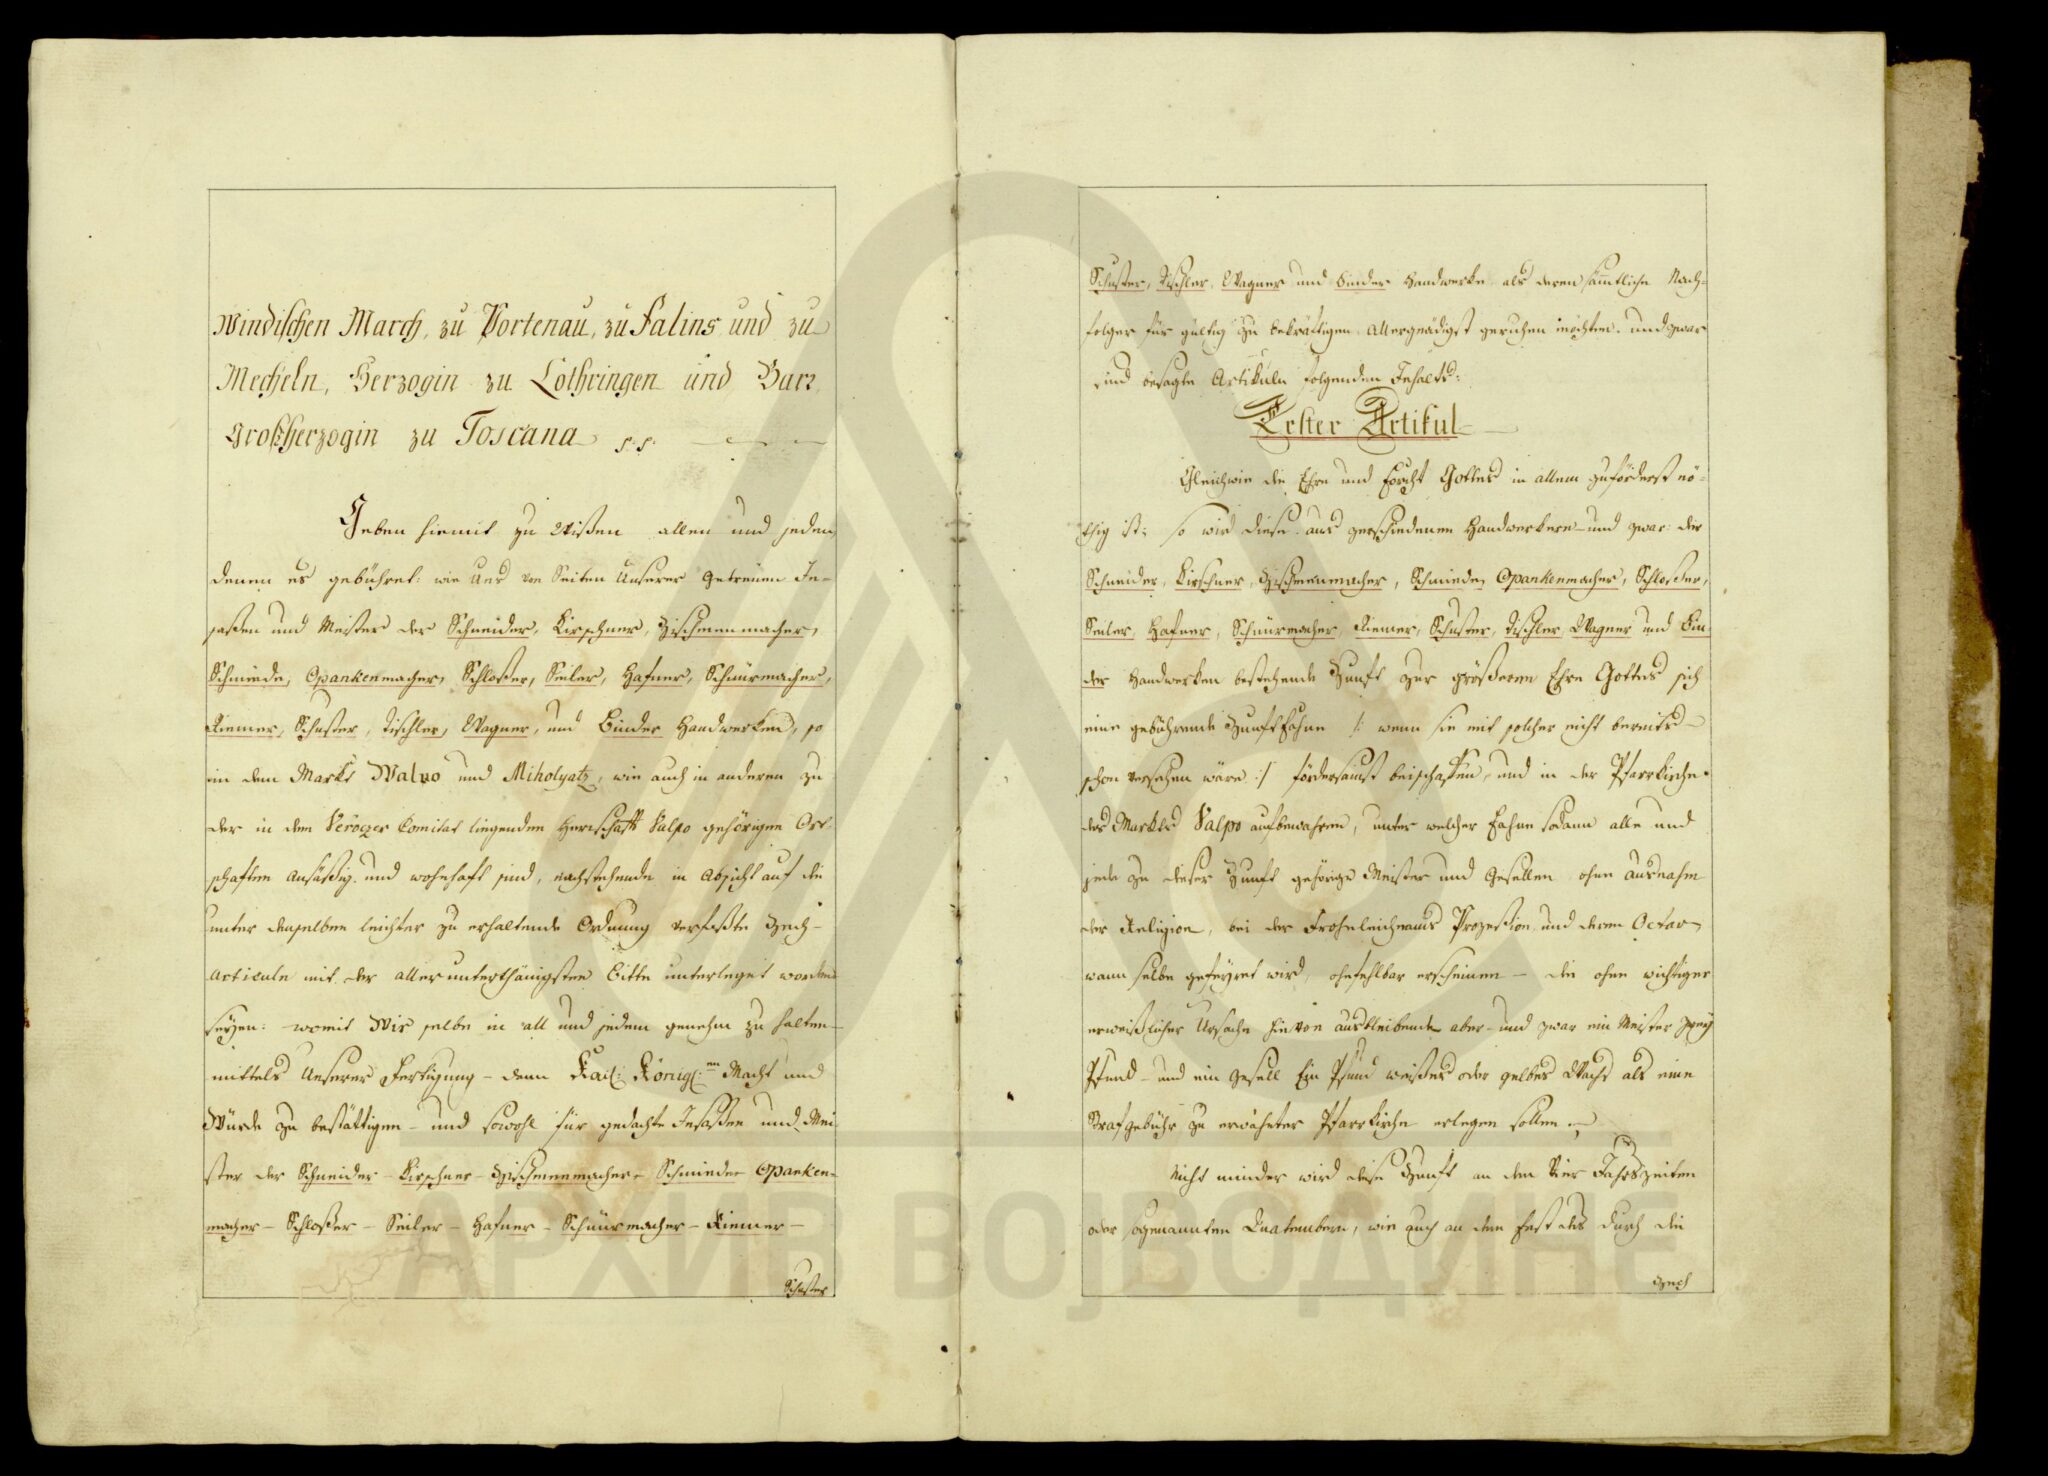 Windischen March, zu Portenau, zu Salins und zu
Mecheln, Herzogin zu Lothringen und Barr
Großherzogin zu Toscana p: p:
Geben hiemit zu Wißen allen und jeden
denen es gebühret: wie Uns von Seiten Unserer getreuen In-
saßen und Meister der Schneider, Kirschner, Zischmenmacher,
Schmiede, Opankenmacher, Schloßer, Seiler, Hafner, Schnürmacher,
Riemer, Schuster, Tischler, Wagner, und Binder Handwerken, so
in dem Markt Walpo und Miholyatz, wie auch in anderen zu
der in dem Veröczer Comitat liegenden Herrschafft Valpo gehörigen Ort-
schaften ansäßig und wohnhaft sind, nachstehende in Absicht auf die
unter denselben leichter zu erhaltende Ordnung verfaßte Zech-
Articuln mit der allerunterthänigsten Bitte unterleget worden
seyen: womit Wir selbe in all und jedem genehm zu halten
mittels Unserer Fertigung – dann Kaiß: Königl:en Macht und
Würde zu bestättigen – und sowohl für gedachte Insaßen und Mei-
ster der Schneider – Kirschner – Zischmenmacher – Schmiede – Opanken-
macher – Schloßer – Seiler – Hafner – Schnürmacher – Riemer –
Schuster
Schuster, Tischler, Wagner und Binder Handwerke, als deren sämtliche Nach-
folger für gültig zu bekräftigen Allergnädigst geruhen möchten. und zwar
sind besagte Artikuln folgenden Inhalts:
Erster Artikul
Gleichwie die Ehre und Forcht Gottes in allem zuförderst nö-
thig ist; so wird diese aus verschiedenen Handwerkern und zwar: der
Schneider, Kirschner, Zischmenmacher, Schmiede, Opankenmacher, Schloßer,
Seiler, Hafner, Schnürmacher, Riemer, Schuster, Tischler, Wagner und Bin-
der Handwerken bestehende Zunft zur größeren Ehre Gottes sich
eine gebührende Zunftfahne /: wenn sie mit solcher nicht bereits –
schon versehen wäre :/ fördersamst beischaffen, und in der Pfarrkirche
des Markts Valpo aufbewahren, unter welcher Fahne sodann alle und
jede zu dieser Zunft gehörige Meister und Gesellen ohne Ausnahm
der Religion, bei der Frohnleichnams Prozeßion und deren Octav
wann selbe gefeyret wird, ohnfehlbar erscheinen – die ohne wichtiger
erweißlicher Ursache hievon ausbleibende aber – und zwar ein Meister zwey
Pfund – und ein Gesell Ein Pfund weißes oder gelbes Wachs als eine
Strafgebühr zu erwähnter Pfarrkirche erlegen sollen.
Nicht minder wird diese Zunft an den Vier Jahrszeiten
oder sogenannten Quatembern, wie auch an dem Fest des durch die
Zech
АРХИВ ВОЈВОДИНЕ